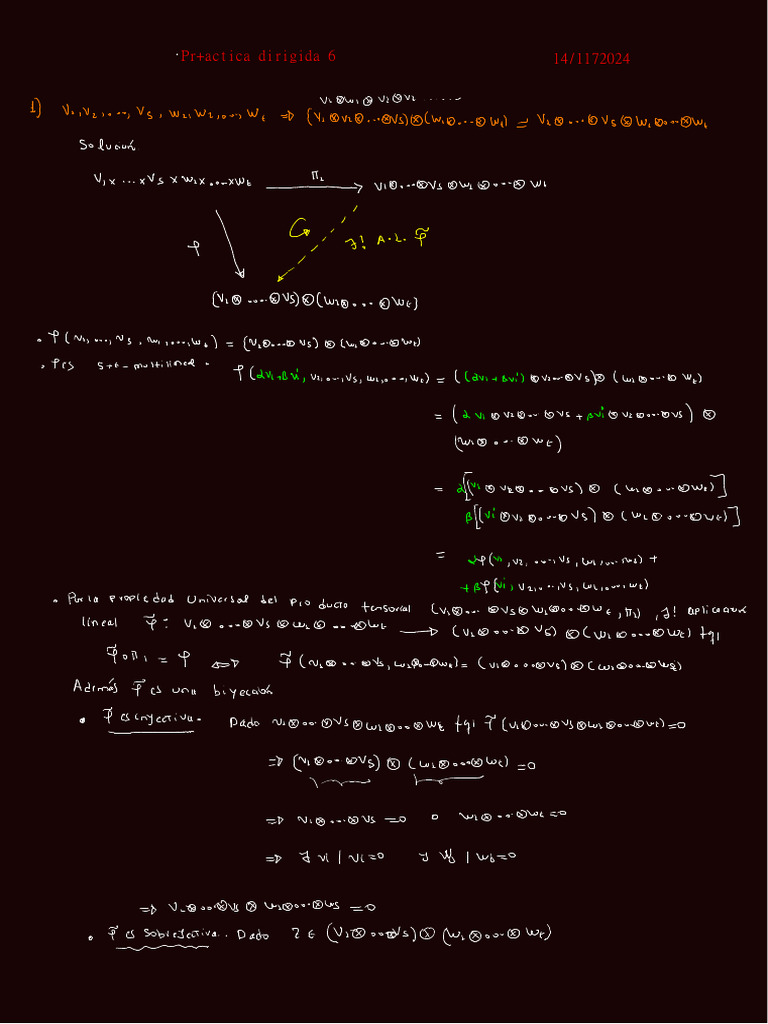 Pr+actica dirigida 6
14/1172024
V₁⊗W₁⊗V₂⊗V₂ .....
1) V₁,V₂,...,Vₛ,W₁,W₂,...,Wₜ ⇒ (V₁⊗V₂⊗...⊗Vₛ)⊗(W₁⊗...⊗Wₜ) ≃ V₁⊗...⊗Vₛ⊗W₁⊗...⊗Wₜ
Solución
V₁×...×Vₛ×W₁×...×Wₜ ⟶ Π₁ V₁⊗...⊗Vₛ⊗W₁⊗...⊗Wₜ
φ ∃! A.L. φ̃
(V₁⊗....⊗Vₛ)⊗(W₁⊗...⊗Wₜ)
• φ(v₁,...,vₛ,w₁,...,wₜ) = (v₁⊗...⊗vₛ)⊗(w₁⊗...⊗wₜ)
• φ es s+t-multilineal. φ(αv₁+βv₁', v₂,...,vₛ,w₁,...,wₜ) = ((αv₁+βv₁')⊗v₂...⊗vₛ)⊗(w₁⊗...⊗wₜ)
= (αv₁⊗v₂⊗...⊗vₛ + βv₁'⊗v₂⊗...⊗vₛ)⊗
(w₁⊗...⊗wₜ)
= α[(v₁⊗v₂⊗...⊗vₛ)⊗(w₁⊗...⊗wₜ)]
β[(v₁'⊗v₂⊗...⊗vₛ)⊗(w₁⊗...⊗wₜ)]
= αφ(v₁,v₂,...,vₛ,w₁,...,wₜ)+
+βφ(v₁',v₂,...,vₛ,w₁,...,wₜ)
• Por la propiedad Universal del producto tensorial (V₁⊗...⊗Vₛ⊗W₁⊗...⊗Wₜ,Π₁), ∃! aplicación
lineal φ̃: V₁⊗...⊗Vₛ⊗W₁⊗...⊗Wₜ ⟶ (V₁⊗...⊗Vₛ)⊗(W₁⊗...⊗Wₜ) tq
φ̃∘Π₁ = φ ⇔ φ̃(v₁⊗...⊗vₛ,w₁⊗...⊗wₜ) = (v₁⊗...⊗vₛ)⊗(w₁⊗...⊗wₜ)
Además φ̃ es una biyección
• φ̃ es inyectiva. Dado v₁⊗...⊗vₛ⊗w₁⊗...⊗wₜ tq φ̃(v₁⊗...⊗vₛ⊗w₁⊗...⊗wₜ)=0
⇒ (v₁⊗...⊗vₛ)⊗(w₁⊗...⊗wₜ)=0
⇒ v₁⊗...⊗vₛ=0 o w₁⊗...⊗wₜ=0
⇒ ∃ vᵢ | vᵢ=0 y | =0
⇒ v₁⊗...⊗vₛ⊗w₁⊗...⊗wₛ=0
• φ̃ es sobreyectiva. Dado z ∈ (V₁⊗...⊗Vₛ)⊗(W₁⊗...⊗Wₜ)